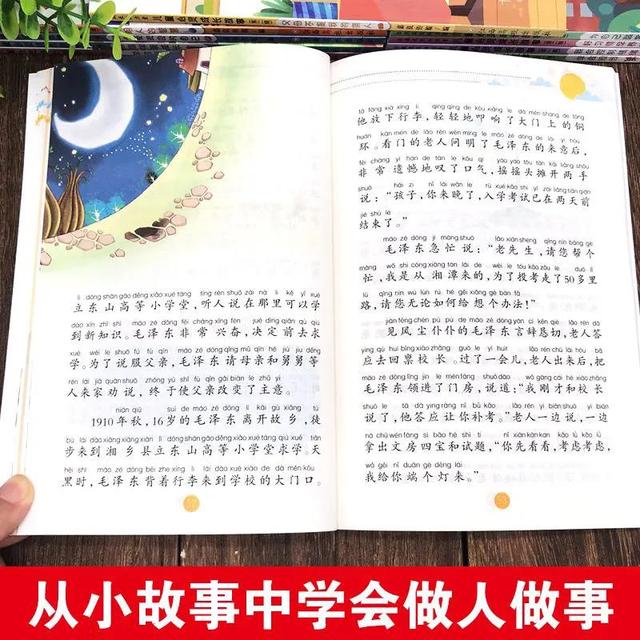 lì dōng shān gāo děng xiǎo xué táng tīng rén shuō zài nà lǐ kě yǐ xué
立东山高等小学堂，听人说在那里可以学
dào xīn zhī shi máo zé dōng fēi cháng xīng fèn jué dìng qián qù qiú
到新知识。毛泽东非常兴奋，决定前去求
xué wèi le shuō fú fù qīn máo zé dōng qǐng mǔ qīn hé jiù jiu děng
学。为了说服父亲，毛泽东请母亲和舅舅等
rén lái jiā quàn shuō zhōng yú shǐ fù qīn gǎi biàn le zhǔ yi
人来家劝说，终于使父亲改变了主意。
nián qiū suì de máo zé dōng lí kāi gù xiāng tú
1910年秋，16岁的毛泽东离开故乡，徒
bù lái dào xiāng xiāng xiàn lì dōng shān gāo děng xiǎo xué táng qiú xué tiān
步来到湘乡县立东山高等小学堂求学。天
hēi shí máo zé dōng bēi zhe xíng li lái dào xué xiào de dà mén kǒu
黑时，毛泽东背着行李来到学校的大门口。
tā fàng xià xíng li qīng qīng de kòu xiǎng le dà mén shang de tóng
他放下行李，轻轻地叩响了大门上的铜
huán kān mén de lǎo rén wèn míng le máo zé dōng de lái yì hòu
环。看门的老人问明了毛泽东的来意后，
fēi cháng yí hàn de tàn le kǒu qì yáo yao tóu tān kāi liǎng shǒu
非常遗憾地叹了口气，摇摇头摊开两手
shuō hái zi nǐ lái wǎn le rù xué kǎo shì yǐ zài liǎng tiān qián
说：“孩子，你来晚了，入学考试已在两天前
jié shù le
结束了。”
máo zé dōng jí máng shuō lǎo xiān sheng qǐng nín bāng gè
毛泽东急忙说：“老先生，请您帮个
máng wǒ shì cóng xiāng tán lái de wèi le tóu kǎo zǒu le duō lǐ
忙，我是从湘潭来的，为了投考走了50多里
lù qǐng nín wú lùn rú hé gěi xiǎng gè bàn fǎ
路，请您无论如何给想个办法！”
jiàn fēng chén pú pú de máo zé dōng yán cí kěn qiè lǎo rén dā
见风尘仆仆的毛泽东言辞恳切，老人答
ying qù huí bǐng xiào zhǎng guò le yí huìr lǎo rén chū lái hòu bǎ
应去回禀校长。过了一会儿，老人出来后，把
máo zé dōng lǐng jìn le mén fáng shuō dào wǒ gāng cái hé xiào zhǎng
毛泽东领进了门房，说道：“我刚才和校长
shuō le tā dā ying ràng nǐ bǔ kǎo lǎo rén yì biān shuō yì biān
说了，他答应让你补考。”老人一边说，一边
ná chū wén fáng sì bǎo hé shì tí nǐ xiān kàn kan kǎo lǜ kǎo lǜ
拿出文房四宝和试题，“你先看看，考虑考虑，
wǒ gěi nǐ duān gè dēng lái
我给你端个灯来。”
从小故事中学会做人做事